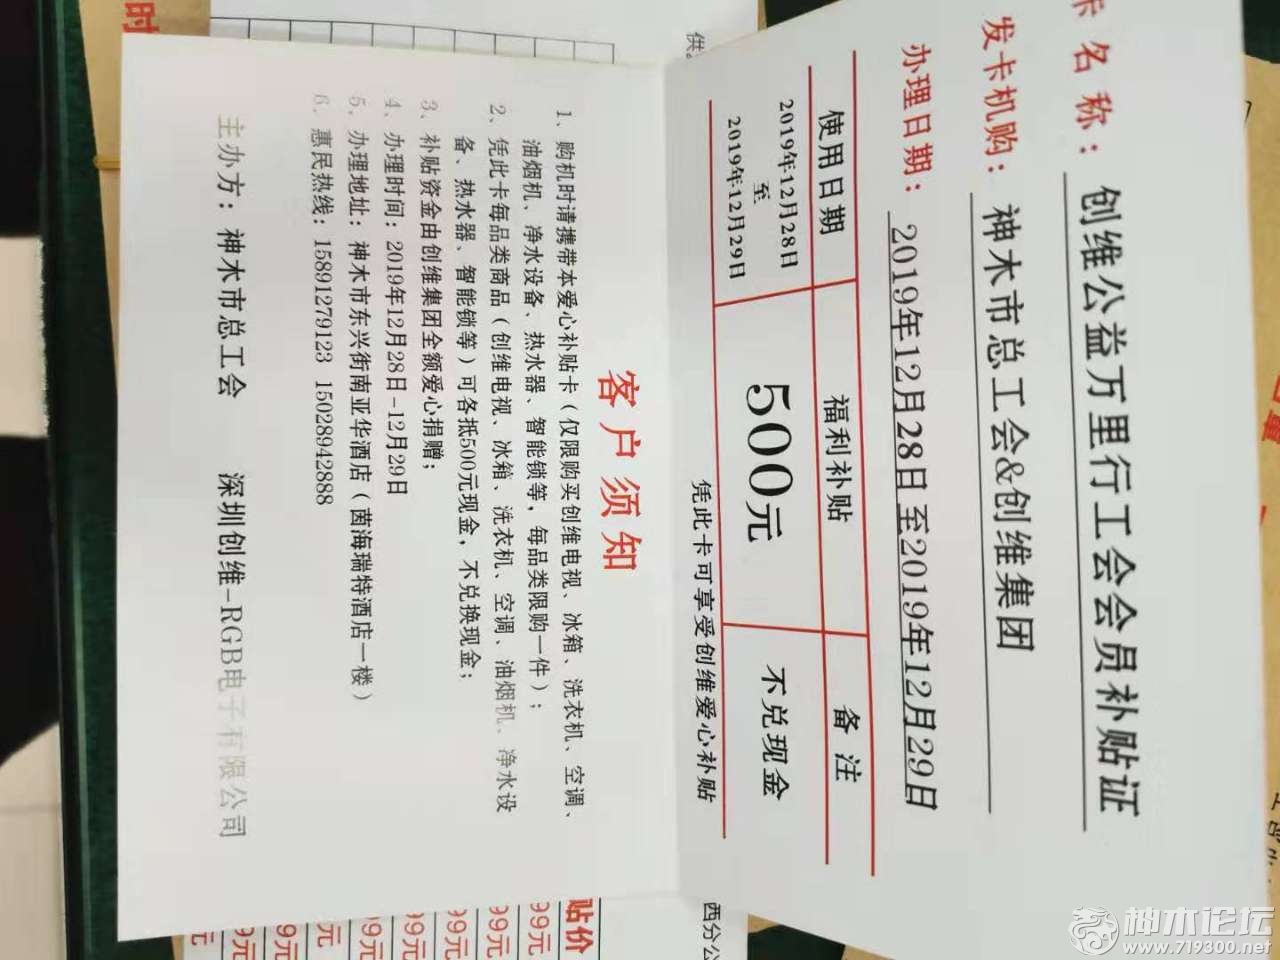 卡名称：创维公益万里行工会会员补贴证
发卡机购：神木市总工会&创维集团
办理日期：2019年12月28日至2019年12月29日
使用日期 福利补贴 备注
2019年12月28日
至
2019年12月29日
500元
不兑现金
凭此卡可享受创维爱心补贴
客户须知
1、购机时请携带本爱心补贴卡（仅限购买创维电视、冰箱、洗衣机、空调、
油烟机、净水设备、热水器、智能锁等，每品类限购一件）；
2、凭此卡每品类商品（创维电视、冰箱、洗衣机、空调、油烟机、净水设
备、热水器、智能锁等）可各抵500元现金，不兑换现金；
3、补贴资金由创维集团全额爱心捐赠；
4、办理时间：2019年12月28日-12月29日
5、办理地址：神木市东兴街南亚华酒店（茵海瑞特酒店一楼）
6、惠民热线：15891279123 15028942888
主办方：神木市总工会 深圳创维-RGB电子有限公司
时
供
西分公
贴价
99元
99元
99元
99元
99元
99元
99元
99元
神木论坛
www.719300.net